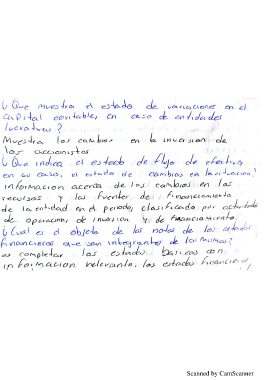 ¿Que muestra el estado de variaciones en el
capital contable, en caso de entidades
lucrativas?
Muestra los cambios en la inversion de
los accionistas
¿Que indica el estado de flujo de efectivo
en su caso, el estado de cambios en la situacion?
informacion acerca de los cambios en los
recursos y las fuentes de financiamiento
de la entidad en el periodo, clasificado por actividades
de operacion, de inversion y de financiamiento.
¿Cual es el objeto de las notas de los estados
financieros que son integrantes de los mismos?
es completar los estados basicos con
informacion relevante. los estados financieros
Scanned by CamScanner